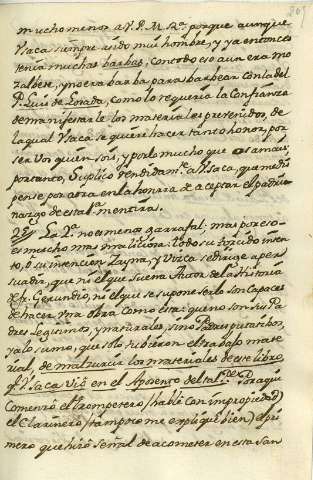 mucho menor a V. P. M. R.ª porque aunque
Ysaca siempre ha sido mui hombre, y ya entonces
tenia muchas barbas, con todo eso aun era mo
zalbete, y no era barba para barbear con la del
P. Luis de Losada, como lo requeria la Confianza
de manifestarle los materiales pretendidos, de
la qual Ysaca se quiere hacer tanto honor, por
ser Vos quien sois, y por lo mucho que os amais;
por tanto, Suplico rendidam.te a Ysaca, que me dis
pense por aora en la honrra de aceptar el padri
nazgo de esta l.ª mentira.
La 2.ª no es menos garrafal; mas por eso
es mucho mas maliciosa. Todo su torcido inten
to, o su intencion Zayna, y Vizca se dirige a per
suadir, que ni el que suena Autor de la Historia
de fr. Gerundio, ni el que se supone serlo son capaces
de hacer Una obra como esta: que no son sus Pa
dres Legitimos, y naturales, sino Padres putatibos,
y a lo sumo, que solo tubieron el trabajo mate
rial, de mal zurcir los materiales de este libro,
q.e Ysaca Vió en el Aposento del tal P.
Comenzó el trompetero (hablé con impropiedad)
el Clarinero (tampoco me expliqué bien) el pri
mero que hizo señal de acometer en esta San